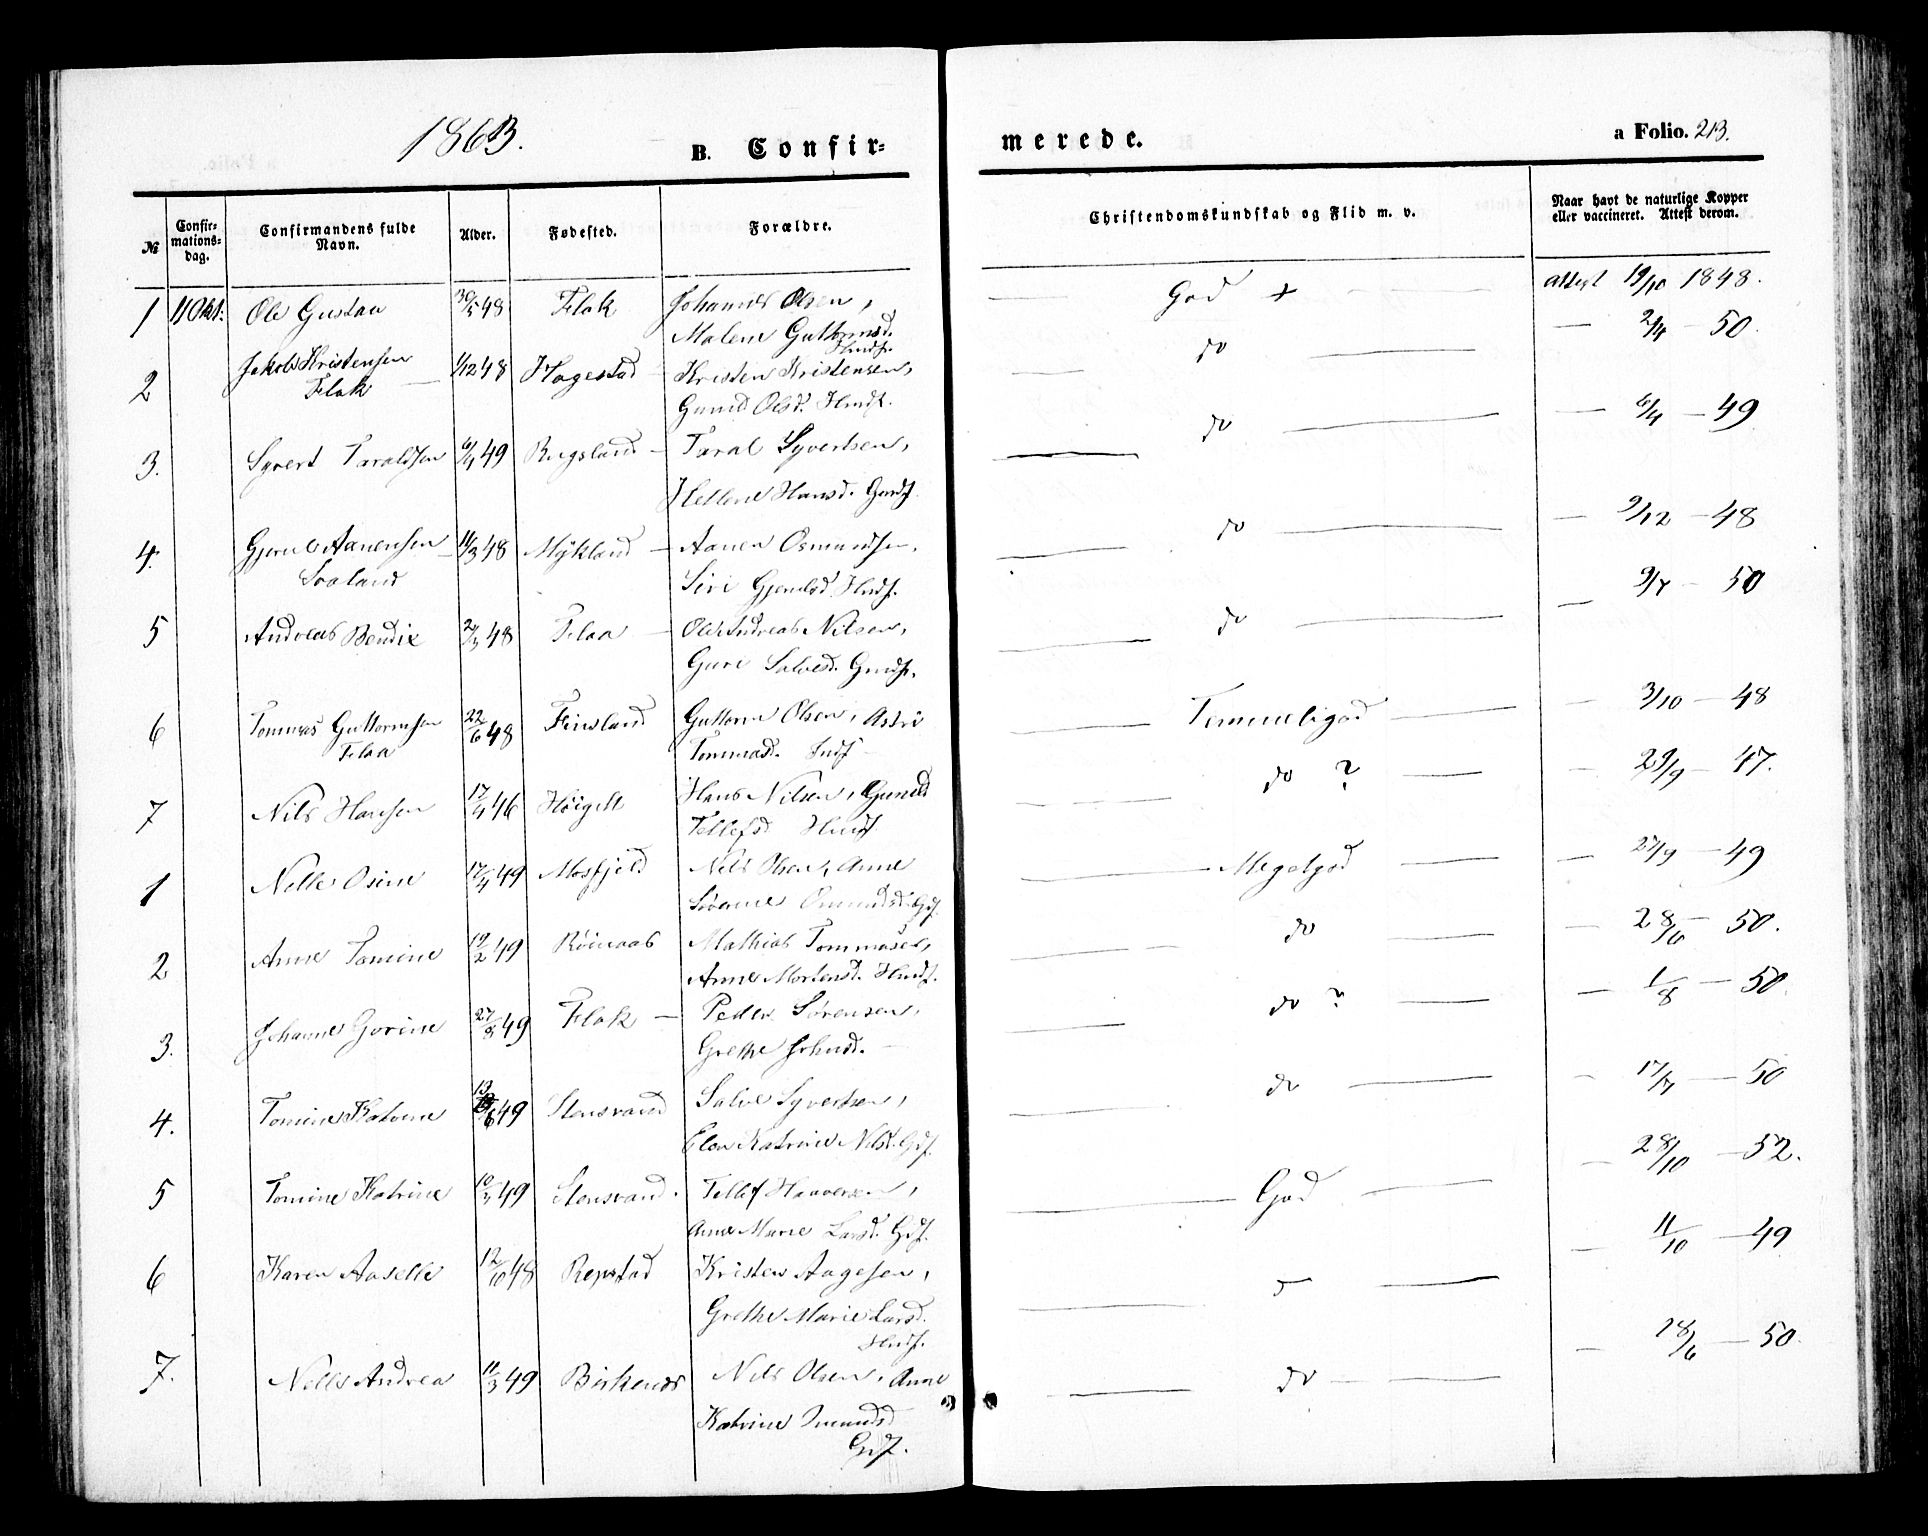 1863.
B. Confir-
merede.
a Folio. 213.
№
Confir-
mations-
dag.
Confirmandens fulde
Navn.
Alder.
Fødested.
Forældre.
Christendomskundskab og Flid m. v.
Naar havt de naturlige Kopper
eller vaccineret. Attest derom.
1 11 Okt. Ole Gustav 30/5 48 Flak Johannes Olsen,
Malene Guttormsd.
Hmdf.
God + attest 19/10 1848.
2 Jakob Kristensen 1/12 48 Hagestad Kristen Kristensen,
Flak
Gunild Olsd. Hmdf.
do — 2/4 — 50.
3. Syvert Taraldsen 6/4 49 Rugsland — Taral Syvertsen,
Hellene Hansd. Gmdf.
do — 6/4 — 49
4. Gjerulv Aanensen 11/3 48 Mykland — Aanen Osmundsen,
Svaland
Siri Gjerulsd. Hmdf.
do — 9/12 — 48
5 Andreas Bendix 48 Flaa — Ole Andreas Nilsen,
Guri Salvesd. Gmdf.
do — 9/7 — 50
6 Tommas Guttormsen 22/6 48 Finsland Guttorm Olsen, Astri
Flaa
Tommasd.
Temmeligod 3/10 — 48
7 Nils Hansen 17/4 46 Høigilt Hans Nilsen, Gunild
Tellefsd Hmdf
do ? — 29/9 — 47.
1 Nelle Osine 17/4 49 Mosfjeld Nils Olsen, Anne
Meget god — 27/9 — 49
2 Anne Tomine 19/2 49 Røinaas Mathias Tommasen,
Anne Mortensd. Hmdf.
do — 28/6 — 50.
3. Johanne Gurine 27/8 49 Flak — Peder Sørensen,
Grethe Johnsd. —
do ? — 1/8 — 50.
4. Tomine Katrine 13/6 49 Stensvand Salve Syvertsen,
Elen Katrine Nilsd. Gdf.
do — 17/7 — 50
5 Tomine Katrine 10/7 49 Stensvand. Tellef Haaversen,
Anne Marie Larsd. Gdf.
God — 28/10 — 52.
6 Karen Aaselle 12/10 48 Repstad Kristen Aagesen,
Grethe Marie Larsd.
Hmdf.
11/10 — 49
7. Nelle Andrea 11/3 49 Birkenes Nils Olsen, Anne
Katrine
Gdf.
do — 28/6 — 50.